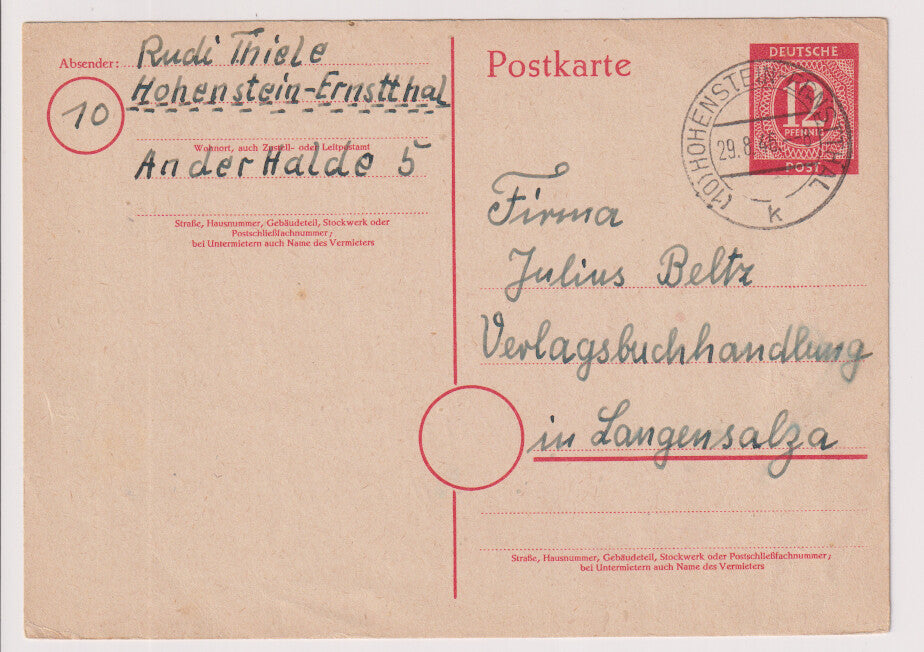 Absender: Rudi Thiele
10 Hohenstein-Ernstthal
Wohnort, auch Zustell- oder Leitpostamt
An der Halde 5
Straße, Hausnummer, Gebäudeteil, Stockwerk oder
Postschließfachnummer;
bei Untermietern auch Name des Vermieters
Postkarte
DEUTSCHE
12
PFENNIG
POST
(10) HOHENSTEIN-ERNSTTHAL
29.8.46
k
Firma
Julius Beltz
Verlagsbuchhandlung
in Langensalza
Straße, Hausnummer, Gebäudeteil, Stockwerk oder Postschließfachnummer;
bei Untermietern auch Name des Vermieters